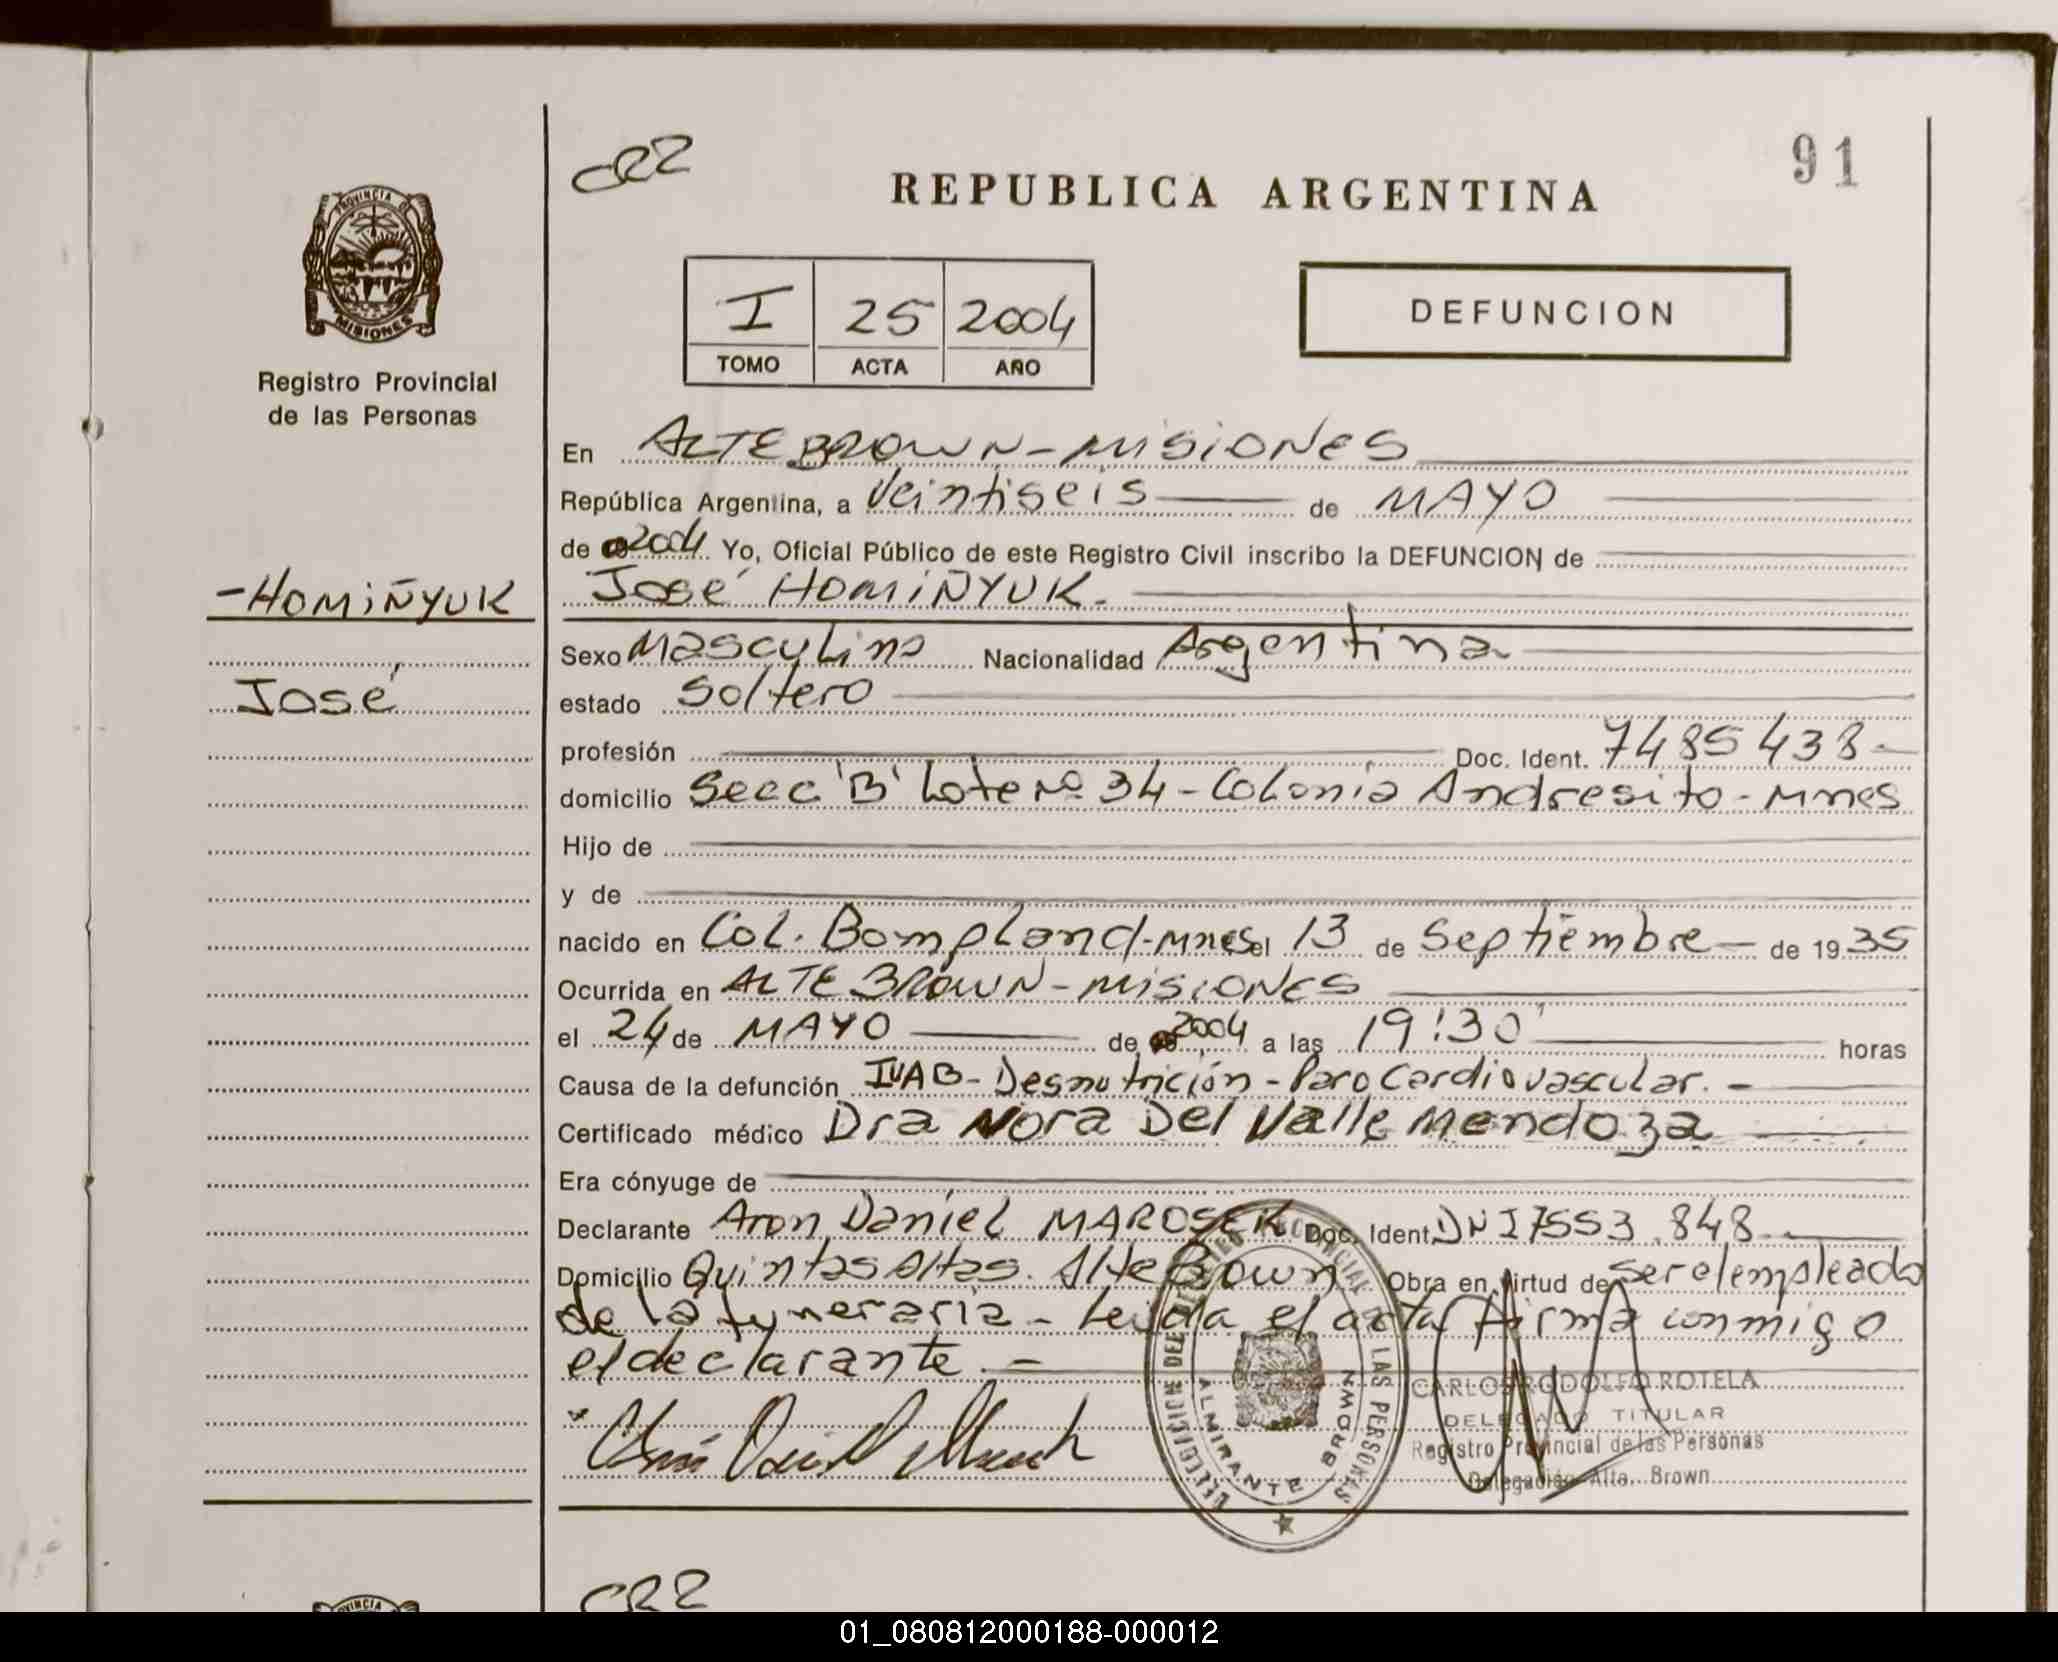 CRZ
91
REPUBLICA ARGENTINA
PROVINCIA DE
MISIONES
Registro Provincial
de las Personas
I 25 2004
TOMO ACTA AÑO
DEFUNCION
En ALTE BROWN - MISIONES
República Argentina, a Veintiseis de MAYO
de 2004 Yo, Oficial Público de este Registro Civil inscribo la DEFUNCION de
- HOMIÑYUK
José HOMIÑYUK.
Sexo Masculino Nacionalidad Argentina
José
estado Soltero
profesión Doc. Ident. 7485438 -
domicilio Secc 'B' Lote Nº 34 - Colonia Andresito - Mnes
Hijo de
y de
nacido en Col. Bompland - Mnes el 13 de Septiembre de 1935
Ocurrida en ALTE BROWN - MISIONES
el 24 de MAYO de 2004 a las 19:30' horas
Causa de la defunción - Desnutrición - Paro Cardiovascular. -
Certificado médico Dra Nora Del Valle Mendoza
Era cónyuge de
Declarante Aron Daniel MAROSEK Doc. Ident. DNI 7553.848
Domicilio Quintas Altas. Alte Brown Obra en virtud de ser el empleado
de la funeraria - Leida el acta firma conmigo
el declarante. -
DELEGACION DEL REGISTRO PROVINCIAL DE LAS PERSONAS
ALMIRANTE BROWN
CARLOS RODOLFO ROTELA
DELEGADO TITULAR
Registro Provincial de las Personas
Delegación Alte. Brown
PROVINCIA
CRZ
01_080812000188-000012